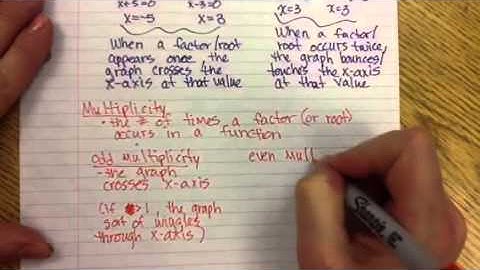 x+5=0 x-3=0
x=-5 x=3
x=3 x=3
When a factor/root
appears once the
graph crosses the
x-axis at that value
When a factor/
root occurs twice
the graph bounces/
touches the x-axis
at that value
Multiplicity
• the # of times a factor (or root)
occurs in a function
odd multiplicity
- the graph
crosses x-axis
(if >1, the graph
sort of wiggles
through x-axis)
even mul
Sharpie